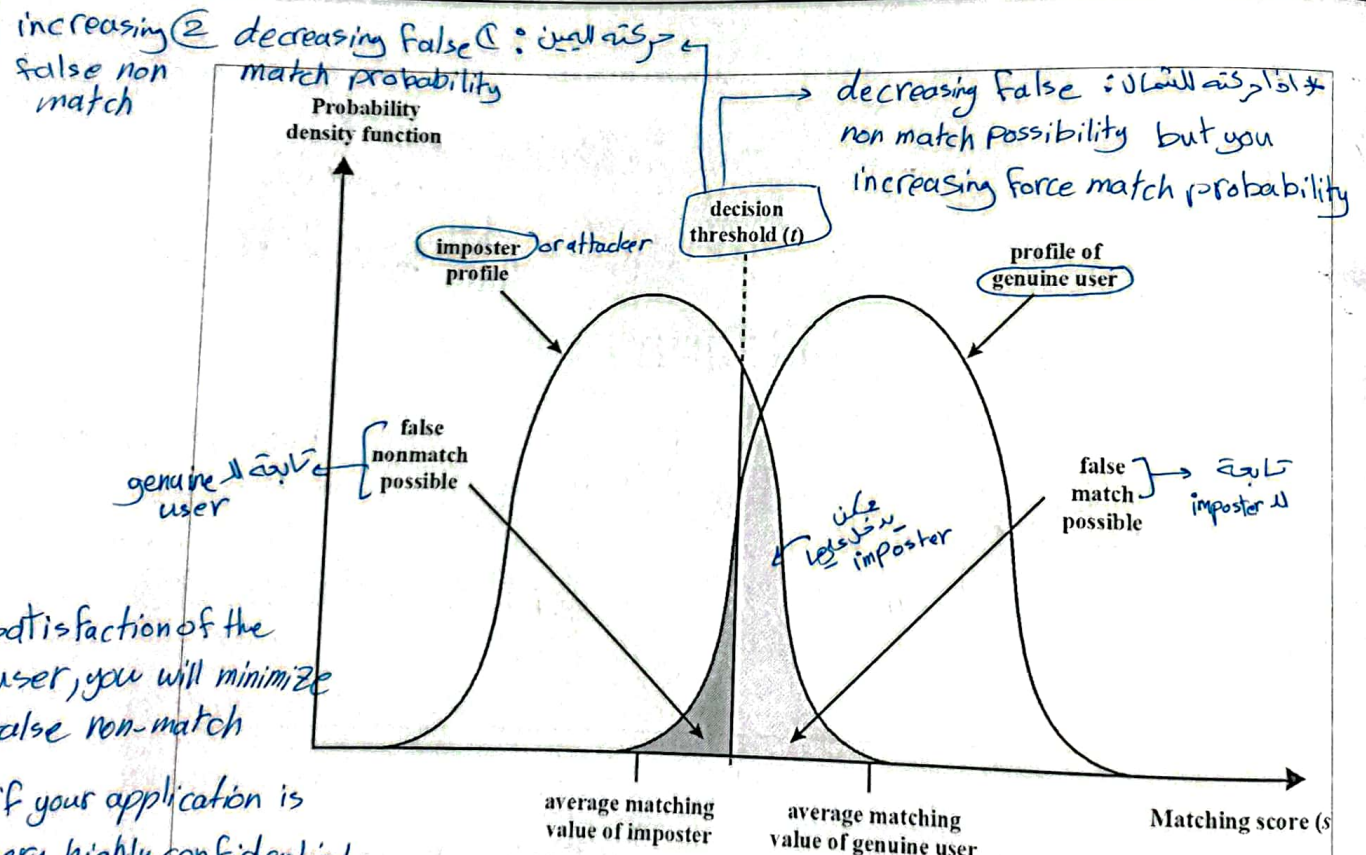 increasing ② decreasing false ① : حركته اليمين
false non match probability
match
* اذا حركته للشمال : decreasing false
non match possibility but you
increasing force match probability
Probability
density function
decision
threshold (t)
imposter or attacker
profile
profile of
genuine user
false
nonmatch
possible
تابعة لل genuine
user
false
match
possible
تابعة
لل imposter
يمكن
يدخل عليها
imposter
satisfaction of the
user, you will minimize
false non-match
if your application is
very highly confidential
average matching
value of imposter
average matching
value of genuine user
Matching score (s